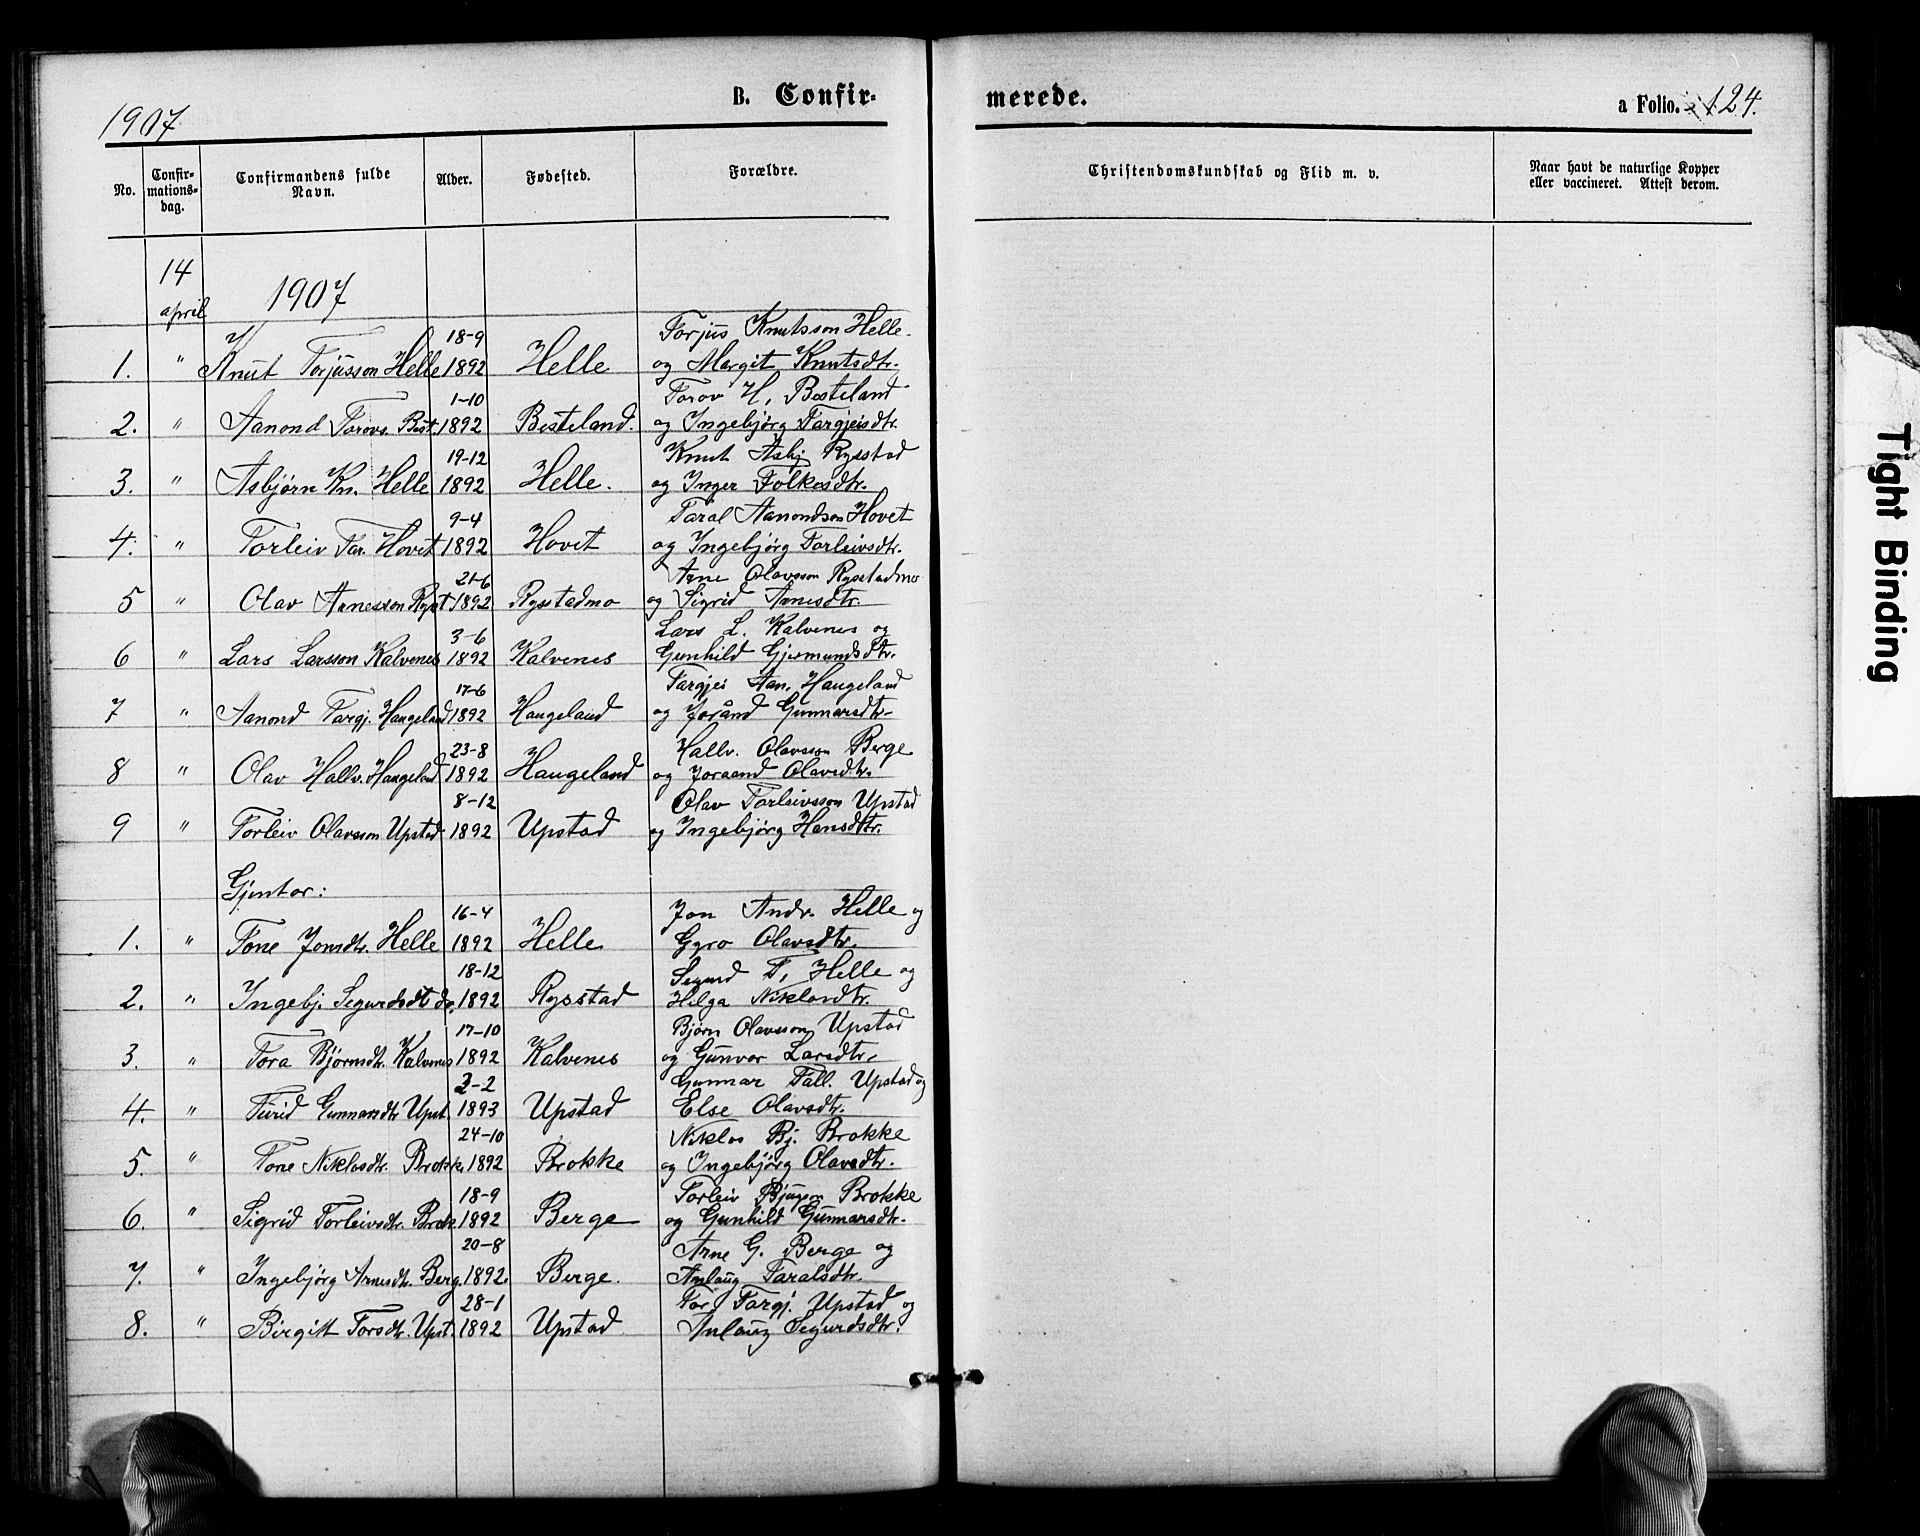 1907
B. Confir-
merede.
a Folio. 124.
No.
Confir-
mations-
dag.
Confirmandens fulde
Navn.
Alder.
Fødested.
Forældre.
Christendomskundskab og Flid m. v.
Naar havt de naturlige Kopper
eller vaccineret. Attest derom.
14
april
1907
18-9 Torjus Knutsson Helle
1. " Knut Torjusson Helle 1892 Helle og Margit Knutsdtr.
1-10 Torov H. Besteland
2. " Aanond Torovs. Best. 1892 Besteland. og Ingebjørg Targjeisdtr.
19-12 Knut Asbj Rysstad
3. " Asbjørn Kn. Helle 1892 Helle. og Inger Folkesdtr.
9-4 Taral Aanondson Hovet
4. " Torleiv Tar. Hovet 1892 Hovet og Ingebjørg Torleivsdtr.
21-6 Arne Olavsson Rysstadmo
5 " Olav Arnesson Ryst 1892 Rysstadmo og Sigrid Arnesdtr.
3-6 Lars L. Kalvenes og
6 " Lars Larsson Kalvenes 1892 Kalvenes Gunhild Gjermundsdtr.
17-6 Targjei Aan. Haugeland
7 " Aanond Targj. Haugeland 1892 Haugeland og Joránd Gunnarsdtr.
23-8 Hallv. Olavsson Berge
8 " Olav Hallv. Haugelad 1892 Haugeland og Joraand Olavsdtr.
8-12 Olav Torleivsson Upstad
9 " Torleiv Olavsson Upstad 1892 Upstad og Ingebjørg Hansdtr.
Gjentor:
16-4 Jon Andr. Helle og
1. " Tone Jonsdtr. Helle 1892 Helle Gyro Olavsdtr.
18-12 Segurd T. Helle og
2. " Ingebj. Segurdsdt do. 1892 Rysstad Helga Niklosdtr.
17-10 Bjørn Olavsson Upstad
3. " Tora Bjørnsdtr. Kalvenes 1892 Kalvenes og Gunvor Larsdtr.
2-2 Gunnar Tall. Upstad og
4. " Turid Gunnarsdtr Upst. 1893 Upstad Else Olavsdtr.
24-10 Niklos Bj. Brokke
5. " Tone Niklosdtr. Brokk. 1892 Brokke og Ingebjørg Olavsdtr.
18-9 Torleiv Bjugson Brokke
6. " Sigrid Torleivsdtr. Brok. 1892 Berge og Gunhild Gunnarsdtr.
20-8 Arne G. Berge og
7. " Ingebjørg Arnesdtr. Berg. 1892. Berge. Anlaug Taralsdtr.
28-1 Tor Targj. Upstad og
8. " Birgitt Torsdtr. Upst. 1892 Upstad Anlaug Segurdsdtr.
Tight Binding